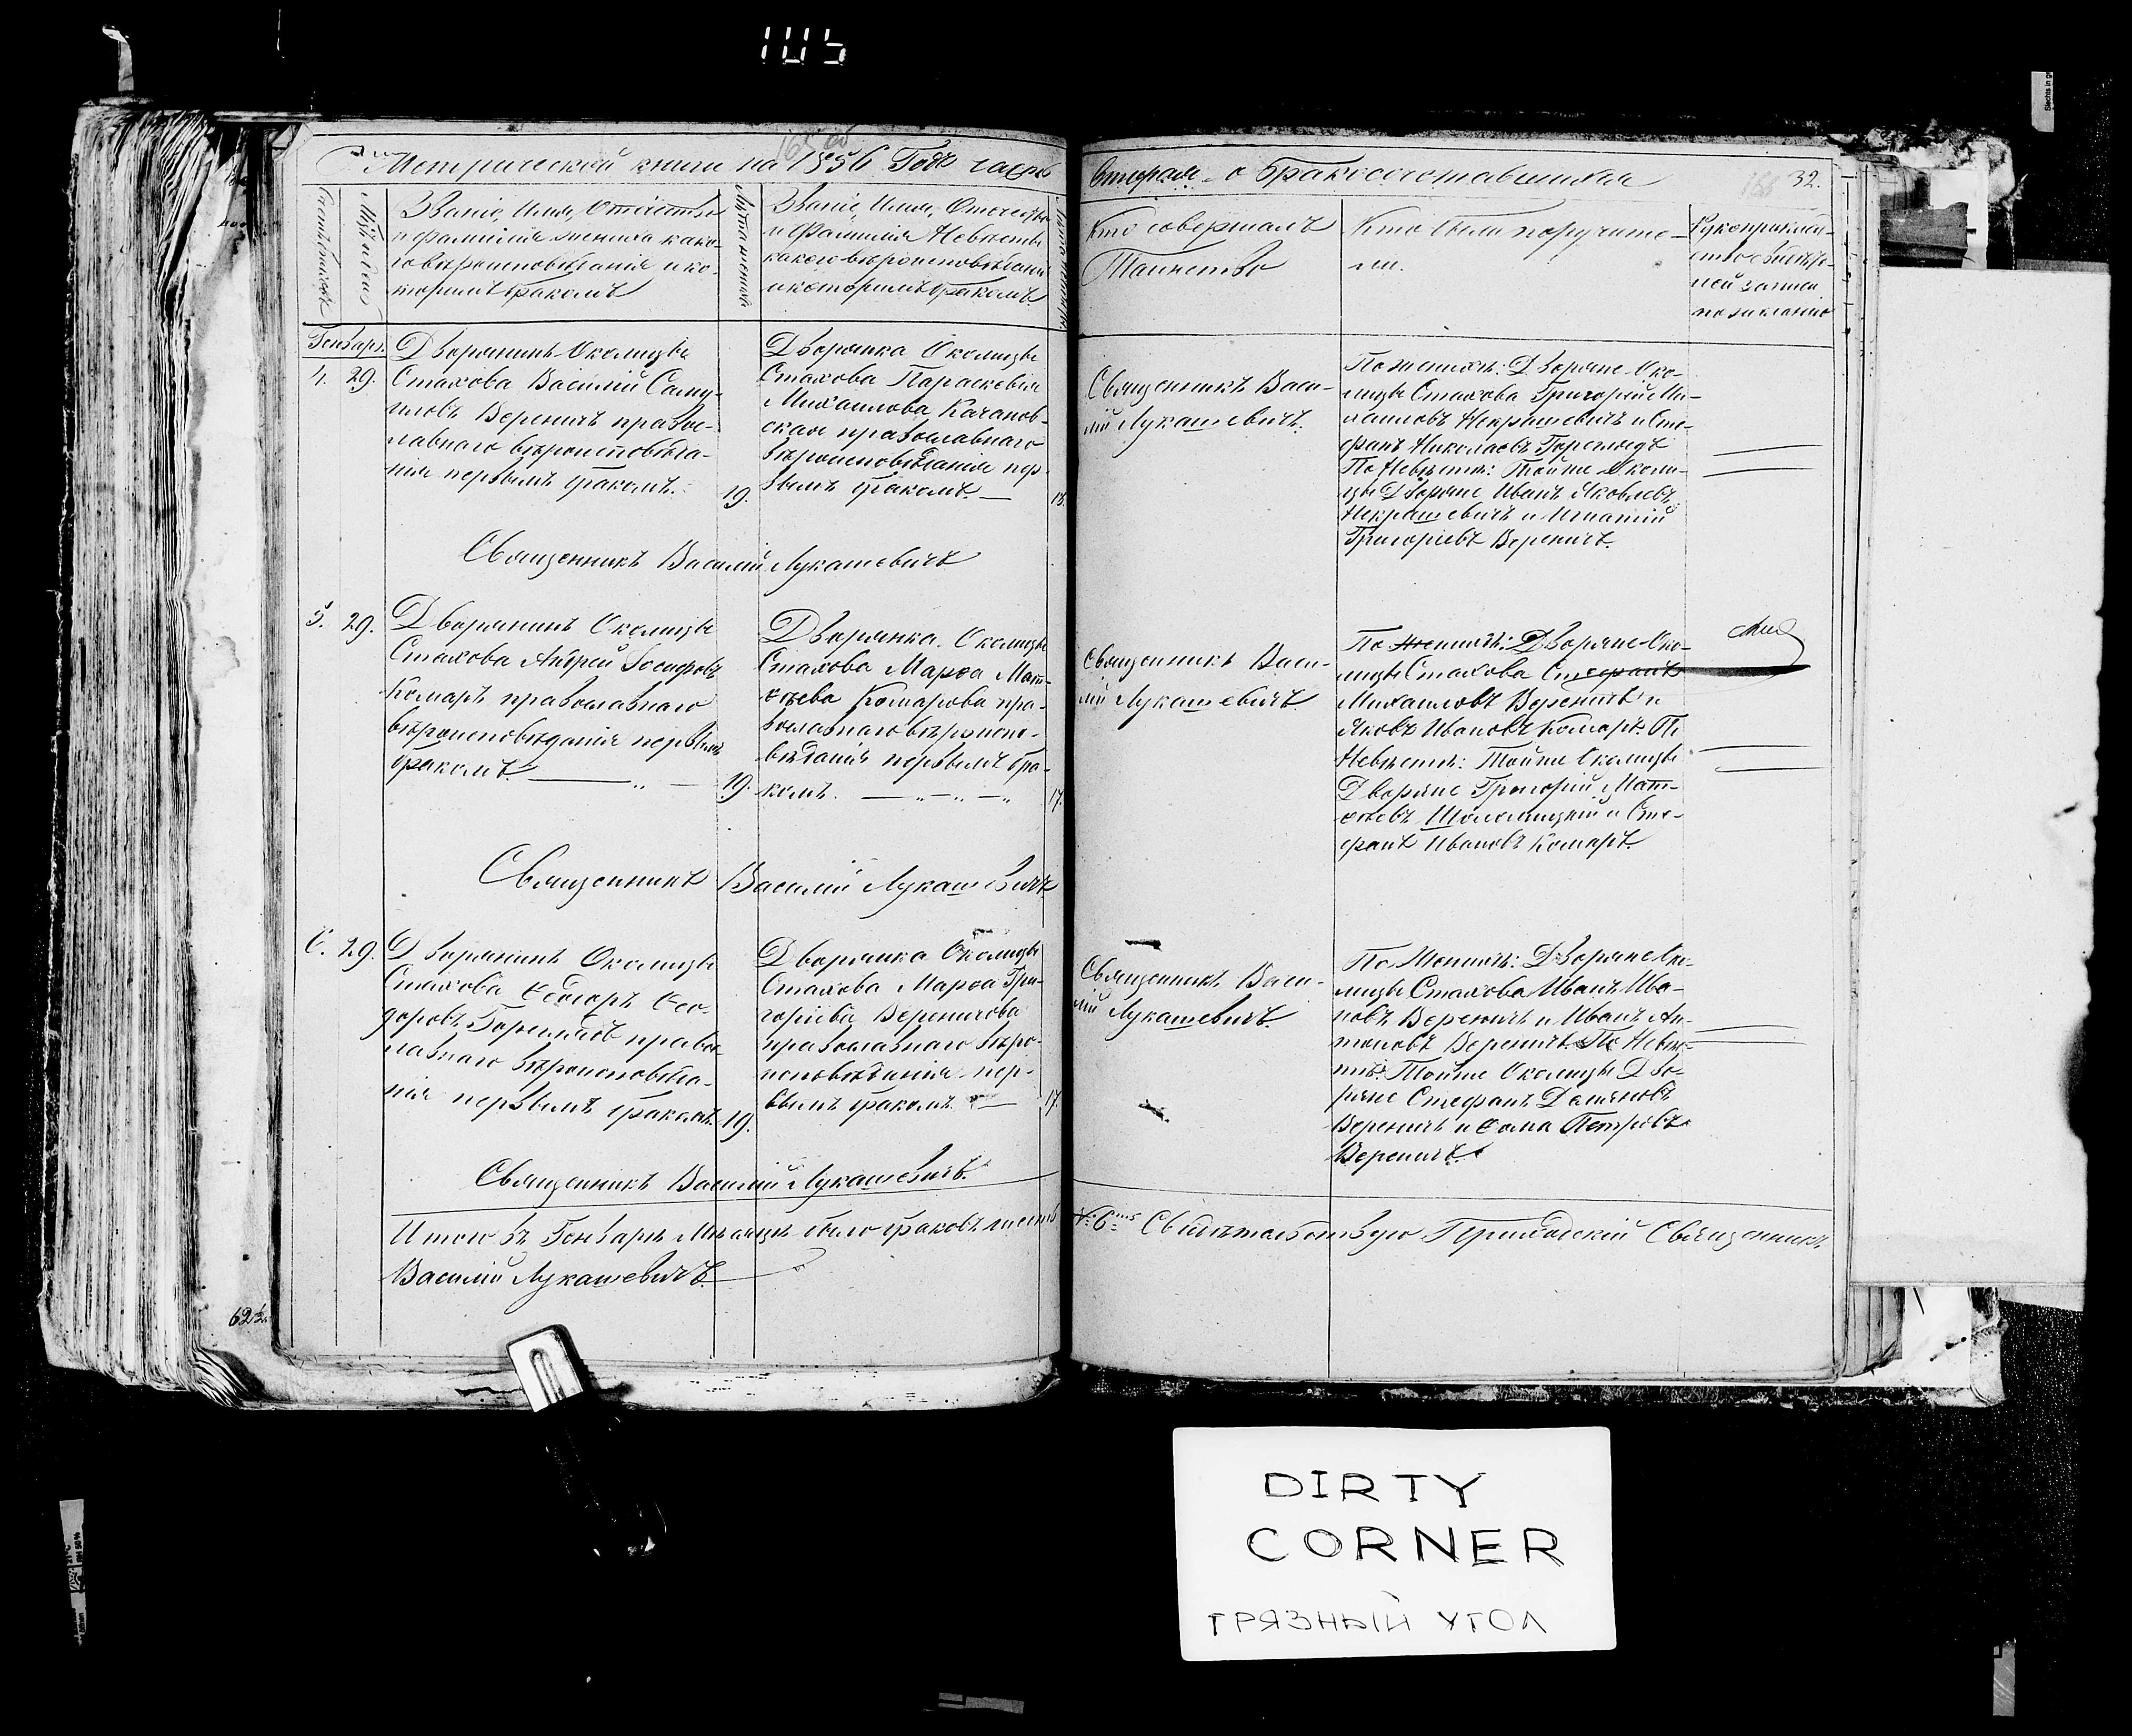 Метрической книги на 1856 Годъ часть
вторая о бракосочетавшихся
32.
Счетъ браковъ
Мѣс. и день
Званіе, Имя, Отчество
и фамилія жениха како-
го вѣроисповѣданія и ко-
торымъ бракомъ
Лѣта жениха
Званіе, Имя, Отчество
и Фамилія Невѣсты
какого вѣроисповѣданія
и которымъ бракомъ
Кто совершалъ
Таинство
Кто были поручите-
ли.
Рукоприклад-
ство свидѣте-
лей записи
по желанію
Генварь.
4. 29.
Дворянинъ Околицы
Стахова Василій Саму-
иловъ Вереничъ правос-
лавнаго вѣроисповѣда-
нія первымъ бракомъ.
19.
Дворянка Околицы
Стахова Параскевія
Михаилова Качанов-
ская православнаго
вѣроисповѣданія пер-
вымъ бракомъ —
18.
Священникъ Васи-
лій Лукашевичъ.
По женихѣ: Дворяне Око-
лицы Стахова Григорій Ми-
хаиловъ Некрашевичъ и Сте-
фанъ Николаевъ
По Невѣстѣ: Тойже Околи-
цы Дворяне Иванъ Яковлевъ
Некрашевичъ и Игнатій
Григоріевъ Вереничъ.
Священникъ Василій Лукашевичъ
5. 29.
Дворянинъ Околицы
Стахова Андрей Іосифовъ
Комаръ православнаго
вѣроисповѣданія первымъ
бракомъ.
19.
Дворянка Околицы
Стахова Марѳа Мат-
ѳѣева Комарова пра-
вославнаго вѣроиспо-
вѣданія первымъ бра-
комъ.
17.
Священникъ Васи-
лій Лукашевичъ.
По Женихѣ: Дворяне Око-
лицы Стахова Стефанъ
Михаиловъ Вереничъ и
Яковъ Ивановъ Комаръ. По
Невѣстѣ: Тойже Околицы
Дворяне Григорій Мат-
ѳѣевъ Шоломицкій и Сте-
фанъ Ивановъ Комаръ.
Священникъ Василій Лукашевичъ
6. 29.
Дворянинъ Околицы
Стахова Ѳеодоръ Ѳео-
доровъ правос-
лавнаго вѣроисповѣда-
нія первымъ бракомъ.
19.
Дворянка Околицы
Стахова Марѳа Гри-
горіева Вереничова
православнаго вѣро-
исповѣданія пер-
вымъ бракомъ —
17.
Священникъ Васи-
лій Лукашевичъ.
По Женихѣ: Дворяне Око-
лицы Стахова Иванъ Ива-
новъ Вереничъ и Иванъ Ан-
тоновъ Вереничъ. По Невѣс-
тѣ: Тойже Околицы Дво-
ряне Стефанъ Демяновъ
Вереничъ и Ѳома Петровъ
Вереничъ.
Священникъ Василій Лукашевичъ.
Итого въ Генварѣ Мѣсяцѣ было браковъ шесть
№ 6. Свидѣтельствую Приходскій Священникъ
Василій Лукашевичъ.
DIRTY
CORNER
ГРЯЗНЫЙ УГОЛ